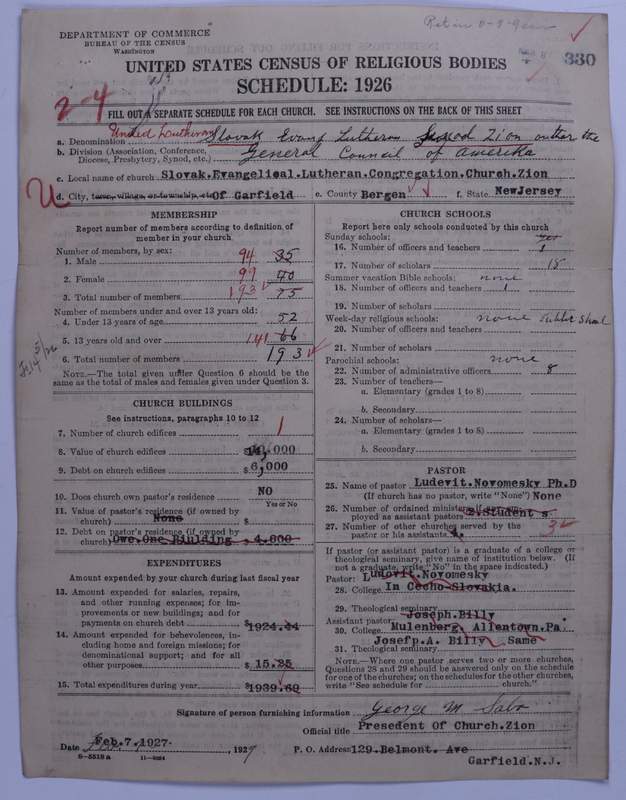 DEPARTMENT OF COMMERCE
BUREAU OF THE CENSUS
WASHINGTON
330
UNITED STATES CENSUS OF RELIGIOUS BODIES
SCHEDULE: 1926
2-4
FILL OUT A SEPARATE SCHEDULE FOR EACH CHURCH. SEE INSTRUCTIONS ON THE BACK OF THIS SHEET
United Lutheran
a. Denomination Slovak Evang Lutheran Synod Zion under the
b. Division (Association, Conference, Diocese, Presbytery, Synod, etc.) General Council of Amerika
c. Local name of church Slovak.Evangelical.Lutheran.Congregation.Church.Zion
U
d. City, town, village, or township, etc. Of Garfield e. County Bergen f. State NewJersey
MEMBERSHIP
Report number of members according to definition of
member in your church
Number of members, by sex:
1. Male 94 35
2. Female 99 40
3. Total number of members 193 75
Number of members under and over 13 years old:
4. Under 13 years of age 52
5. 13 years old and over 141 66
6. Total number of members 193
NOTE.—The total given under Question 6 should be the
same as the total of males and females given under Question 3.
CHURCH BUILDINGS
See instructions, paragraphs 10 to 12
7. Number of church edifices 1
8. Value of church edifices $14,000
9. Debt on church edifices $6,000
10. Does church own pastor's residence NO
Yes or No
11. Value of pastor's residence (if owned by
church) None $
12. Debt on pastor's residence (if owned by
church) Owe.One Biulding $4.000
EXPENDITURES
Amount expended by your church during last fiscal year
13. Amount expended for salaries, repairs,
and other running expenses; for im-
provements or new buildings; and for
payments on church debt $1924.44
14. Amount expended for benevolences, in-
cluding home and foreign missions; for
denominational support; and for all
other purposes $15.25
15. Total expenditures during year $1939.69
CHURCH SCHOOLS
Report here only schools conducted by this church
Sunday schools:
16. Number of officers and teachers 1
17. Number of scholars 18
Summer vacation Bible schools: none
18. Number of officers and teachers
19. Number of scholars
Week-day religious schools: none Public School
20. Number of officers and teachers
21. Number of scholars
Parochial schools: none
22. Number of administrative officers 8
23. Number of teachers—
a. Elementary (grades 1 to 8)
b. Secondary
24. Number of scholars—
a. Elementary (grades 1 to 8)
b. Secondary
PASTOR
25. Name of pastor Ludevit.Novomesky Ph.D
(If church has no pastor, write "None") None
26. Number of ordained ministers employed as assistant pastors 2.Student s
27. Number of other churches served by the
pastor or his assistants 1. 3
If pastor (or assistant pastor) is a graduate of a college or
theological seminary, give name of institution below. (If
not a graduate, write "No" in the space indicated.)
Pastor: Ludovit.Novomesky
28. College In Cecho-Slovakia.
29. Theological seminary
Assistant pastor: Joseph.Billy
30. College Mulenberg, Allentown.Pa.
Josefp.A. Billy Same
31. Theological seminary
NOTE.—Where one pastor serves two or more churches,
Questions 28 and 29 should be answered only on the schedule
for one of the churches; on the schedules for the other churches,
write "See schedule for church."
Signature of person furnishing information George M. Sabo
Official title Presedent Of Church.Zion
Date Feb.7.1927. , 1927 P. O. Address 129.Belmont. Ave
Garfield.N.J.
8-5518 a